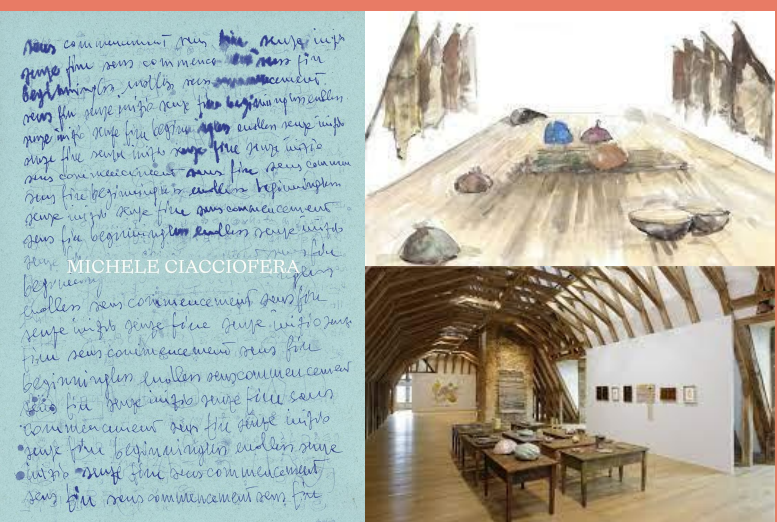 sans commencement sans fin senza inizio
senza fine sans commence sans fin
beginningless endless sans commencement
sans fin senza inizio senza fine beginningless endless
senza inizio senza fine beginningless endless senza inizio
senza fine senza inizio senza fine senza inizio
sans commencement sans fin sans commen
sans fin beginningless endless beginningless
senza inizio senza fine sans commencement
sans fin beginningless endless senza inizio
senza fin
MICHELE CIACCIOFERA
endless sans commencement sans fin
senza inizio senza fine senza inizio senza
fine sans commencement sans fin
beginningless endless sans commencement
sans fin senza inizio senza fine sans
commencement sans fin senza inizio
senza fine beginningless endless senza
inizio senza fine sans commencement
sans fin sans commencement sans fin